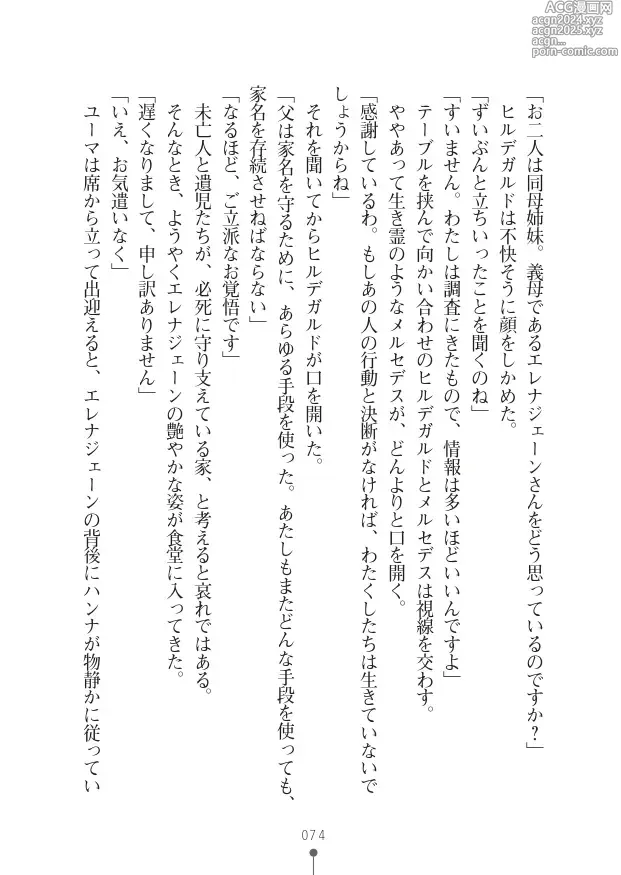 ACG漫画网
acgn2024.xyz
acgn2025.xyz
acgn...
porn-comic.com
「お二人は同母姉妹。義母であるエレナジェーンさんをどう思っているのですか？」
ヒルデガルドは不快そうに顔をしかめた。
「ずいぶんと立ちいったことを聞くのね」
「すいません。わたしは調査にきたもので、情報は多いほどいいんですよ」
テーブルを挟んで向かい合わせのヒルデガルドとメルセデスは視線を交わす。
ややあって生き霊のようなメルセデスが、どんよりと口を開く。
「感謝しているわ。もしあの人の行動と決断がなければ、わたくしたちは生きていないで
しょうからね」
それを聞いてからヒルデガルドが口を開いた。
「父は家名を守るために、あらゆる手段を使った。あたしもまたどんな手段を使っても、
家名を存続させねばならない」
「なるほど、ご立派なお覚悟です」
未亡人と遺児たちが、必死に守り支えている家、と考えると哀れではある。
そんなとき、ようやくエレナジェーンの艶やかな姿が食堂に入ってきた。
「遅くなりまして、申し訳ありません」
「いえ、お気遣いなく」
ユーマは席から立って出迎えると、エレナジェーンの背後にハンナが物静かに従ってい
074